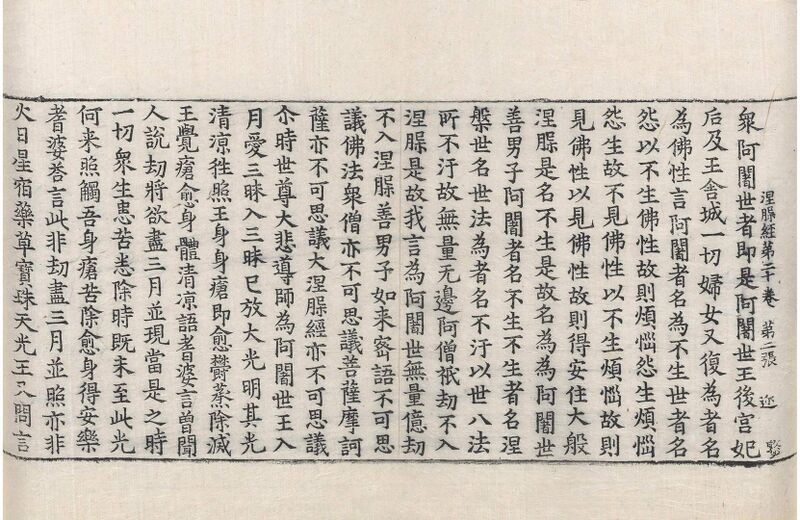 涅槃經第二十卷 第二張 迩
衆阿闍世者即是阿闍世王後宫妃
后及王舍城一切婦女又復為者名
為佛性言阿闍者名為不生世者名
怨以不生佛性故則煩惱怨生煩惱
怨生故不見佛性以不生煩惱故則
見佛性以見佛性故則得安住大般
涅槃是名不生是故名為為阿闍世
善男子阿闍者名不生不生者名涅
槃世名世法為者名不汙以世八法
所不汙故無量无邊阿僧祇劫不入
涅槃是故我言為阿闍世無量億劫
不入涅槃善男子如来密語不可思
議佛法衆僧亦不可思議菩薩摩訶
薩亦不可思議大涅槃經亦不可思議
尒時世尊大悲導師為阿闍世王入
月愛三昧入三昧已放大光明其光
清凉徃照王身身瘡即愈欝蒸除滅
王覺瘡愈身體清凉語耆婆言曾聞
人說劫將欲盡三月並現當是之時
一切衆生患苦悉除時既未至此光
何来照觸吾身瘡苦除愈身得安樂
耆婆荅言此非劫盡三月並照亦非
火日星宿藥草寳珠天光王又問言